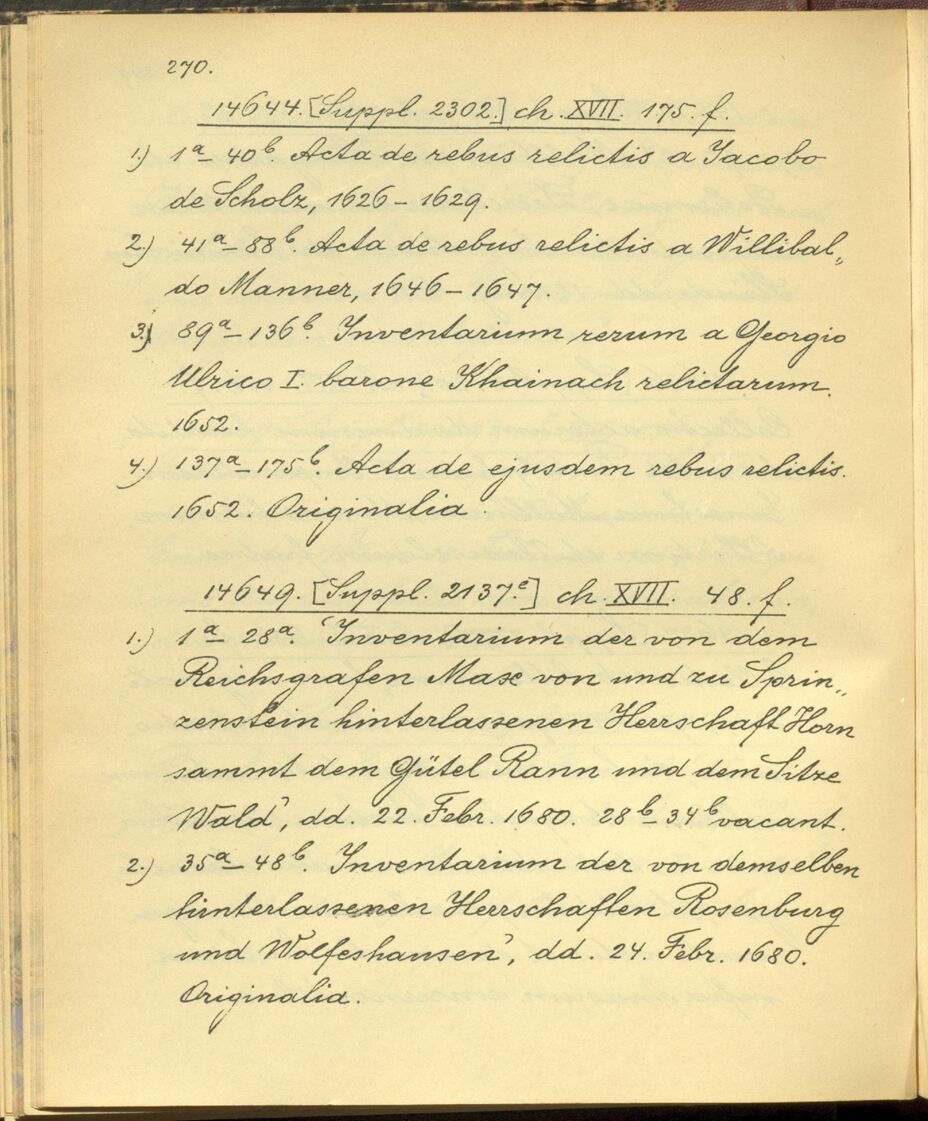 270.
14644. [Suppl. 2302.] ch. XVII. 175. f.
1.) 1ª– 40ᵇ. Acta de rebus relictis a Jacobo
de Scholz, 1626 – 1629.
2.) 41ª– 88ᵇ. Acta de rebus relictis a Willibal„
do Manner, 1646 – 1647.
3.) 89ª– 136ᵇ. Inventarium rerum a Georgio
Ulrico I. barone Khainach relictarum.
1652.
4.) 137ª– 175ᵇ. Acta de ejusdem rebus relictis.
1652. Originalia.
14649. [Suppl. 2137.ᵉ] ch. XVII. 48. f.
1.) 1ª– 28ª. ‘Inventarium der von dem
Reichsgrafen Max von und zu Sprin„
zenstein hinterlassenen Herrschaft Horn
sammt dem Gütel Rann und dem Sitze
Wald’, dd. 22. Febr. 1680. 28ᵇ– 34ᵇ vacant.
2.) 35ª– 48ᵇ. ‘Inventarium der von demselben
hinterlassenen Herrschaften Rosenburg
und Wolfeshausen’, dd. 24. Febr. 1680.
Originalia.